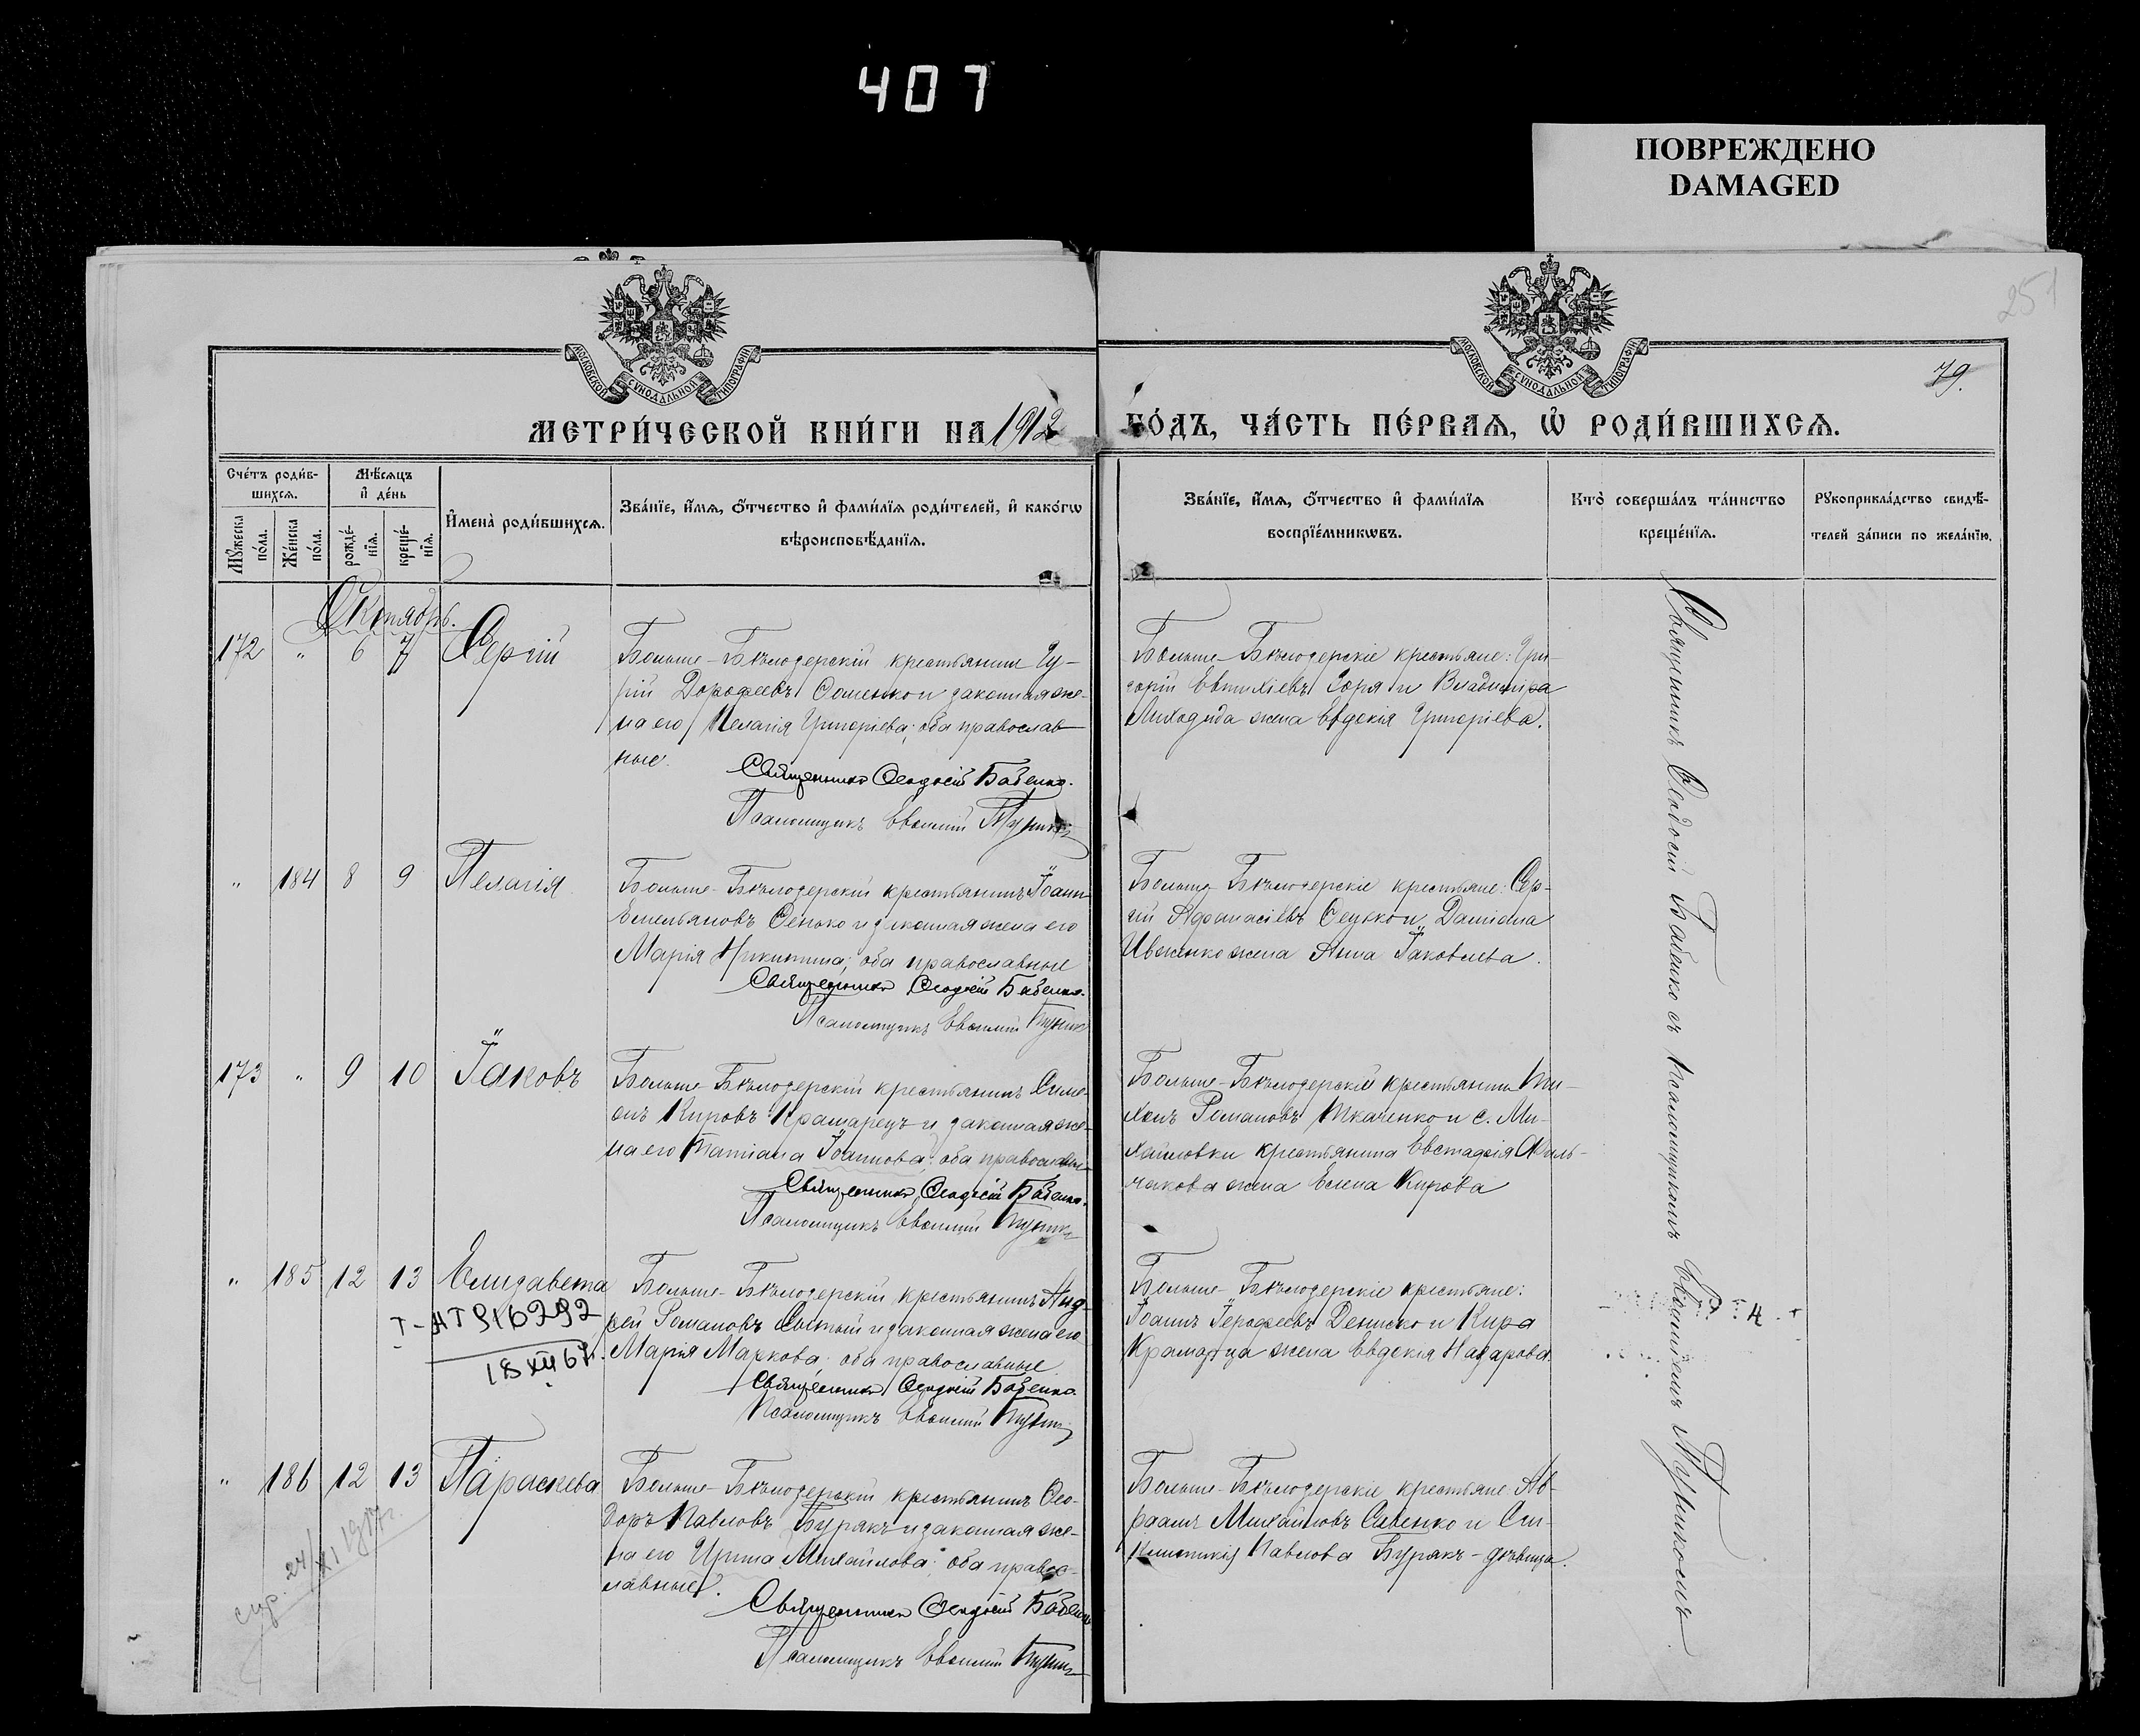 407
ПОВРЕЖДЕНО
DAMAGED
251
79.
МОСКОВСКОЙ СУНОДАЛЬНОЙ ТИПОГРАФІИ
МОСКОВСКОЙ СУНОДАЛЬНОЙ ТИПОГРАФІИ
МЕТРИ́ЧЕСКОЙ КНИ́ГИ НА 1912
ГО́ДЪ, ЧА́СТЬ ПЕ́РВАѦ, Ѡ҆ РОДИ́ВШИХСѦ.
Сче́тъ роди́в-
шихсѧ.
Мѣ́сѧцъ
и҆ де́нь
Мꙋ́жеска
по́ла.
Же́нска
по́ла.
рожде́-
нїѧ.
креще́-
нїѧ.
И҆мена̀ роди́вшихсѧ.
Зва́нїе, и҆́мѧ, ѻ҆́тчество и҆ фами́лїѧ роди́телей, и҆ како́гѡ
вѣроисповѣ́данїѧ.
Зва́нїе, и҆́мѧ, ѻ҆́тчество и҆ фами́лїѧ
воспрїе́мникѡвъ.
Кто̀ соверша́лъ та́инство
креще́нїѧ.
Рꙋкоприкла́дство свидѣ́-
телей за́писи по жела́нїю.
Октябрь.
172 " 6 7 Сергій
Больше-Бѣлозерскій крестьянинъ Гу-
рій Дорофеевъ Соменко и законная же-
на его Пелагія Григоріева; оба православ
ные.
Священникъ Ѳеодосій Бабенко.
Псаломщикъ Евѳимій Пуникъ
Больше-Бѣлозерскіе крестьяне: Гри-
горій Евтихіевъ Горя и Владиміра
Лиходида жена Евдокія Григоріева.
" 184 8 9 Пелагія
Больше-Бѣлозерскій крестьянинъ Іоаннъ
Емельяновъ Сенько и законная жена его
Марія Никитина; оба православные
Священникъ Ѳеодосій Бабенко.
Псаломщикъ Евѳимій Пуникъ
Больше-Бѣлозерскіе крестьяне: Сер-
гій Афанасіевъ Сенько и Даміана
Ивженко жена Анна Іаковлева.
173 " 9 10 Іаковъ
Больше-Бѣлозерскій крестьянинъ Симе-
онъ Кировъ Крамарецъ и законная же-
на его Татіана Іоаннова; оба православн
Священникъ Ѳеодосій Бабенко.
Псаломщикъ Евѳимій Пуникъ
Больше-Бѣлозерскій крестьянинъ Ти-
хонъ Романовъ Ткаченко и с. Ми-
хайловки крестьянина Евстафія
жена Елена Кирова
" 185 12 13 Елизавета
Т-АТ 916292
18 XII 67г.
Больше-Бѣлозерскій крестьянинъ Анд-
рей Романовъ Сытый и законная жена его
Марія Маркова; оба православные
Священникъ Ѳеодосій Бабенко.
Псаломщикъ Евѳимій Пуникъ
Больше-Бѣлозерскіе крестьяне:
Іоаннъ Іерофеевъ Дениско и Кира
Крамарца жена Евдокія Назарова.
" 186 12 13 Параскева
спр. 24/XI 1917г.
Больше-Бѣлозерскій крестьянинъ Ѳео-
доръ Павловъ Бурякъ и законная же-
на его Ирина Михайлова; оба правос-
лавные.
Священникъ Ѳеодосій Бабенко
Псаломщикъ Евѳимій Пуникъ
Больше-Бѣлозерскіе крестьяне: Ав-
раамъ Михайловъ Савенко и Син-
клитикія Павлова Бурякъ-дѣвица.
Священникъ Ѳеодосій Бабенко съ псаломщикомъ Евѳиміемъ Пуникомъ